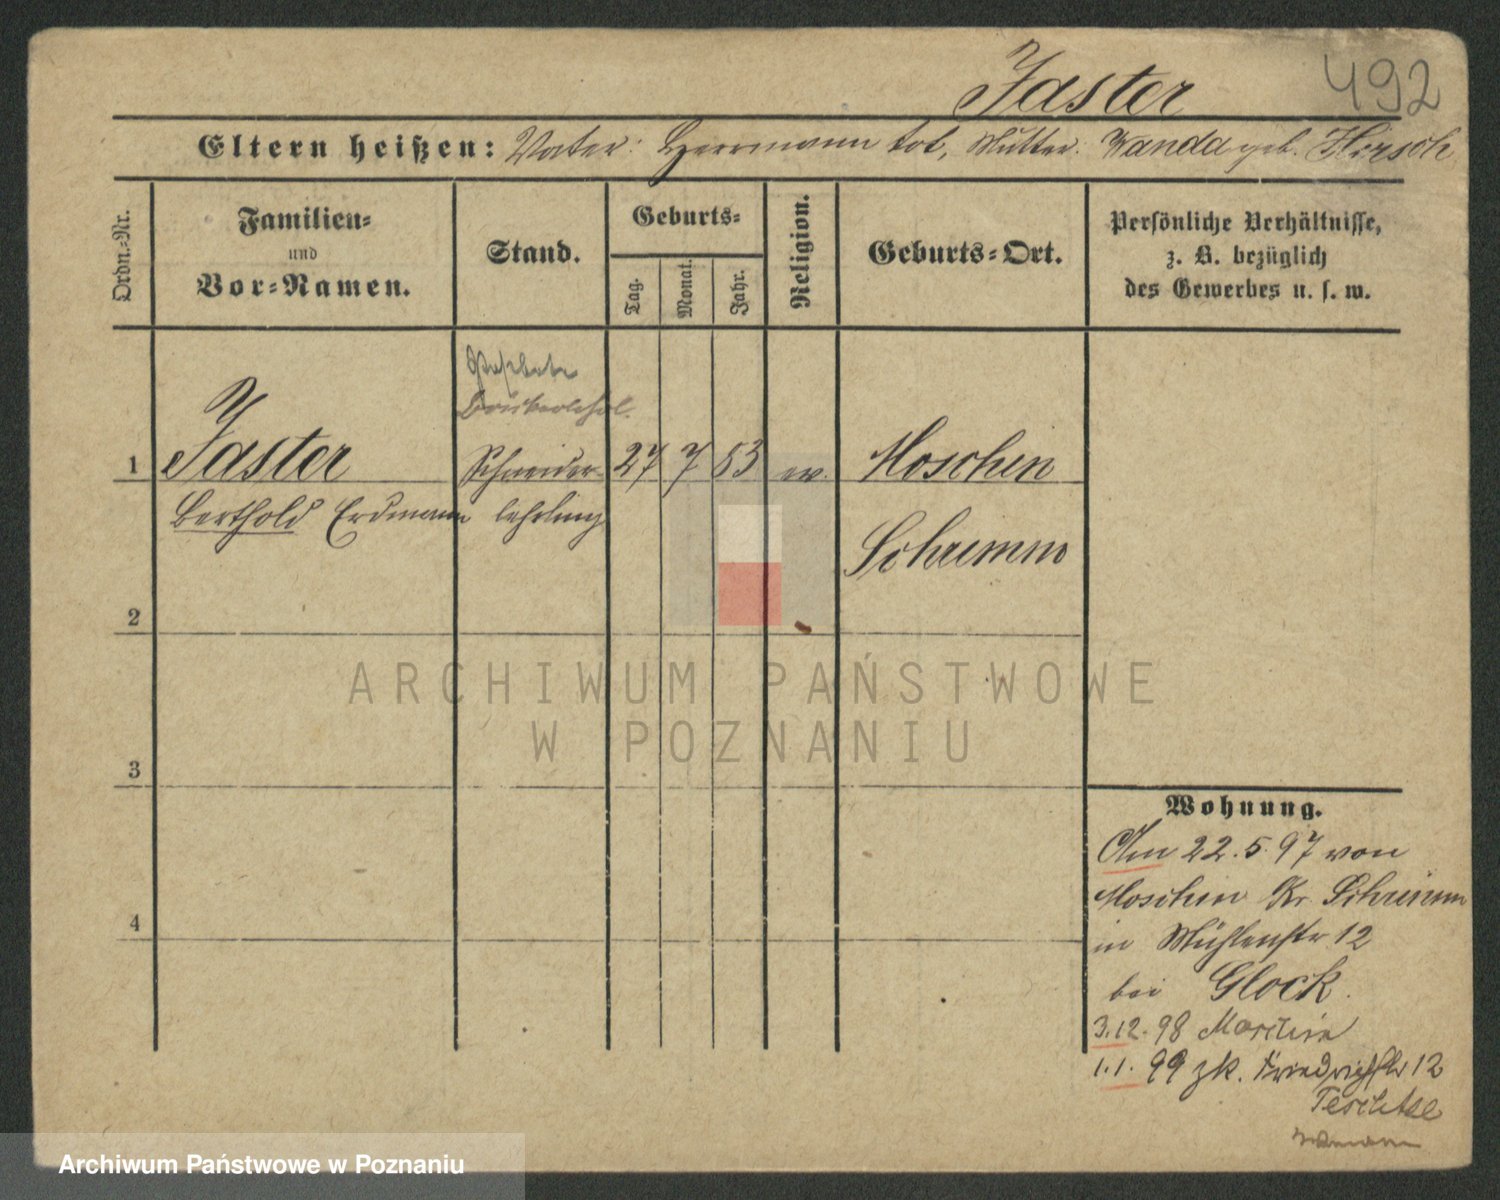 Jaster 492
Eltern heißen: Vater: Herrmann tot, Mutter: Wanda geb. Hirsch
Ordn.-Nr.
Familien-
und
Vor-Namen.
Stand.
Geburts-
Tag.
Monat.
Jahr.
Religion.
Geburts-Ort.
Persönliche Verhältnisse,
z. B. bezüglich
des Gewerbes u. s. w.
1 Jaster Schneider- 27 7 83 ev. Moschin
Berthold Erdmann lehrling
Schrimm
2
3
4
Wohnung.
Am 22.5.97 von
Moschin Kr. Schrimm
in Mühlenstr 12
bei Glock.
3.12.98 Moschin
1.1.99 zk. Friedrichstr 12
ARCHIWUM PAŃSTWOWE
W POZNANIU
Archiwum Państwowe w Poznaniu